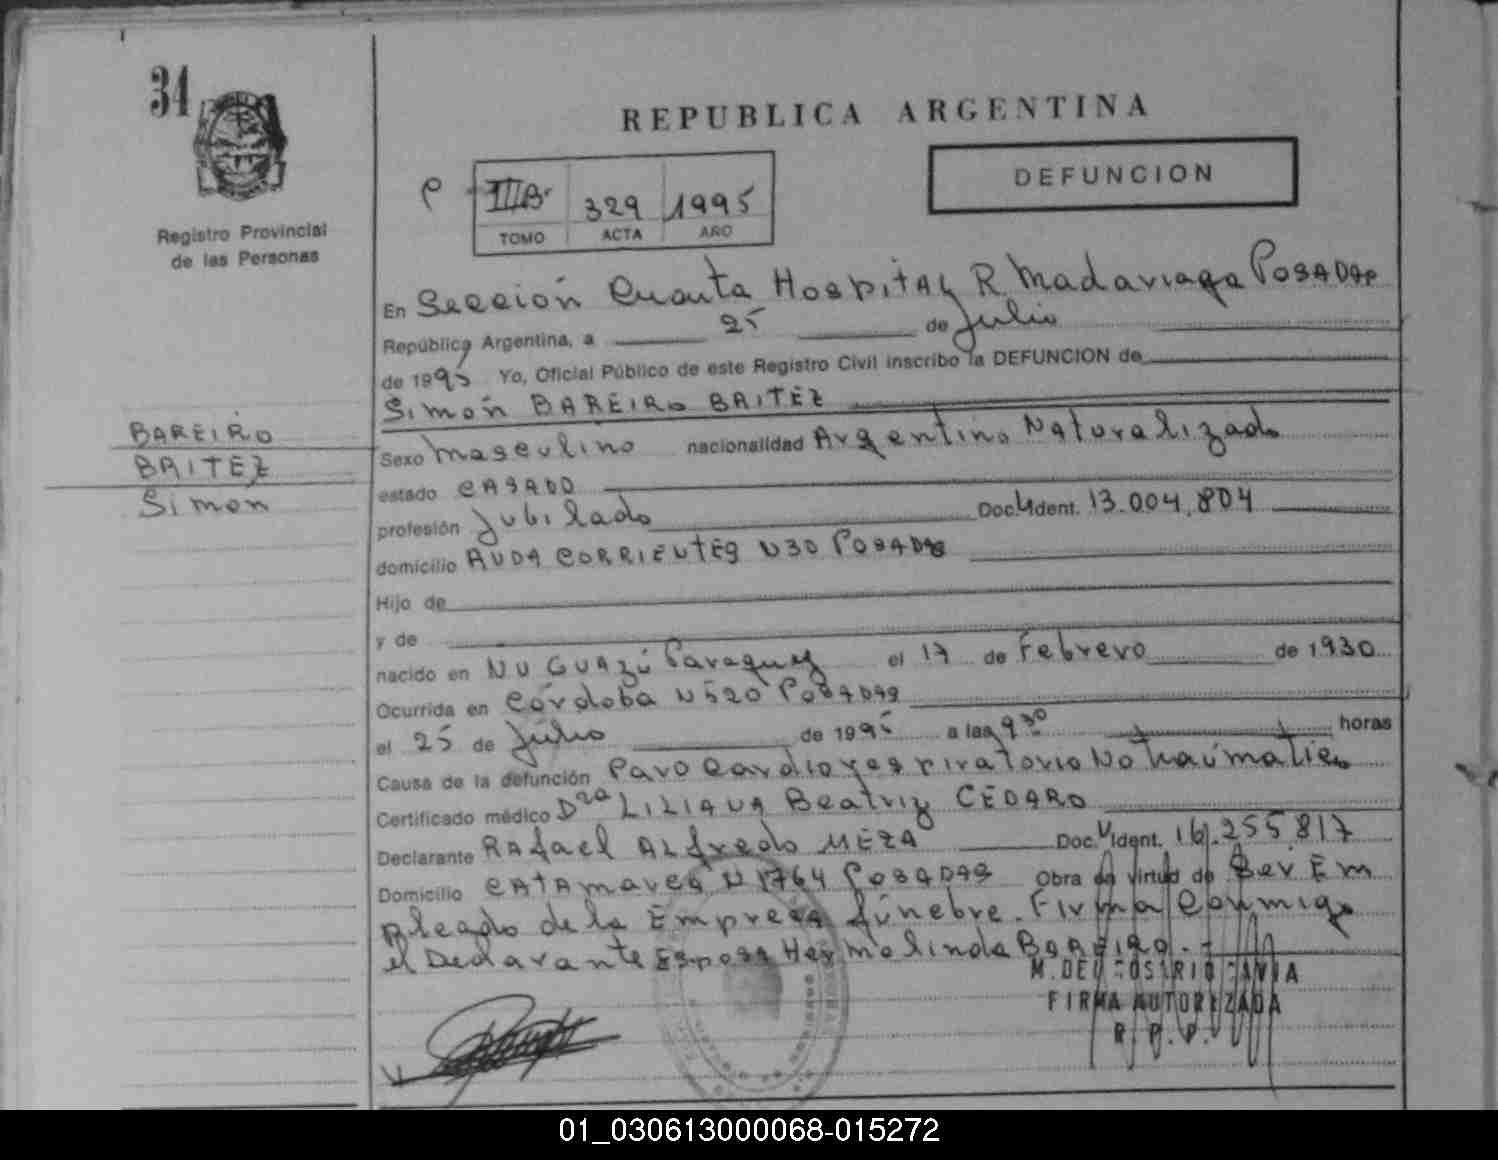 34
REPUBLICA ARGENTINA
DEFUNCION
IIIBº 329 1995
TOMO ACTA AÑO
Registro Provincial
de las Personas
En Sección Cuarta Hospital R. Madariaga Posadas
República Argentina, a 25 de Julio
de 1995 Yo, Oficial Público de este Registro Civil inscribo la DEFUNCION de
Simón BAREIRO BAITEZ
BAREIRO
BAITEZ
Simón
Sexo masculino nacionalidad Argentino Naturalizado
estado CASADO
profesión Jubilado Doc. Ident. 13.004.804
domicilio AVDA CORRIENTES N 30 Posadas
Hijo de
y de
nacido en ÑU GUAZÚ Paraguay el 17 de Febrero de 1930
Ocurrida en Córdoba N 520 Posadas
el 25 de Julio de 1995 a las 9 30 horas
Causa de la defunción Paro Cardiorespiratorio No traumatico
Certificado médico Dra LILIANA Beatriz CÉDARO
Declarante Rafael ALfredo MEZA Doc. Ident. 16.255817
Domicilio CATAMARCA N 1764 Posadas Obra en virtud de Ser Em
pleado de la Empresa fúnebre. Firma Conmigo
el Declarante Esposa Hermelinda BAREIRO.-
M. DEL ROSARIO GAVIA
FIRMA AUTORIZADA
R. P. P.
01_030613000068-015272